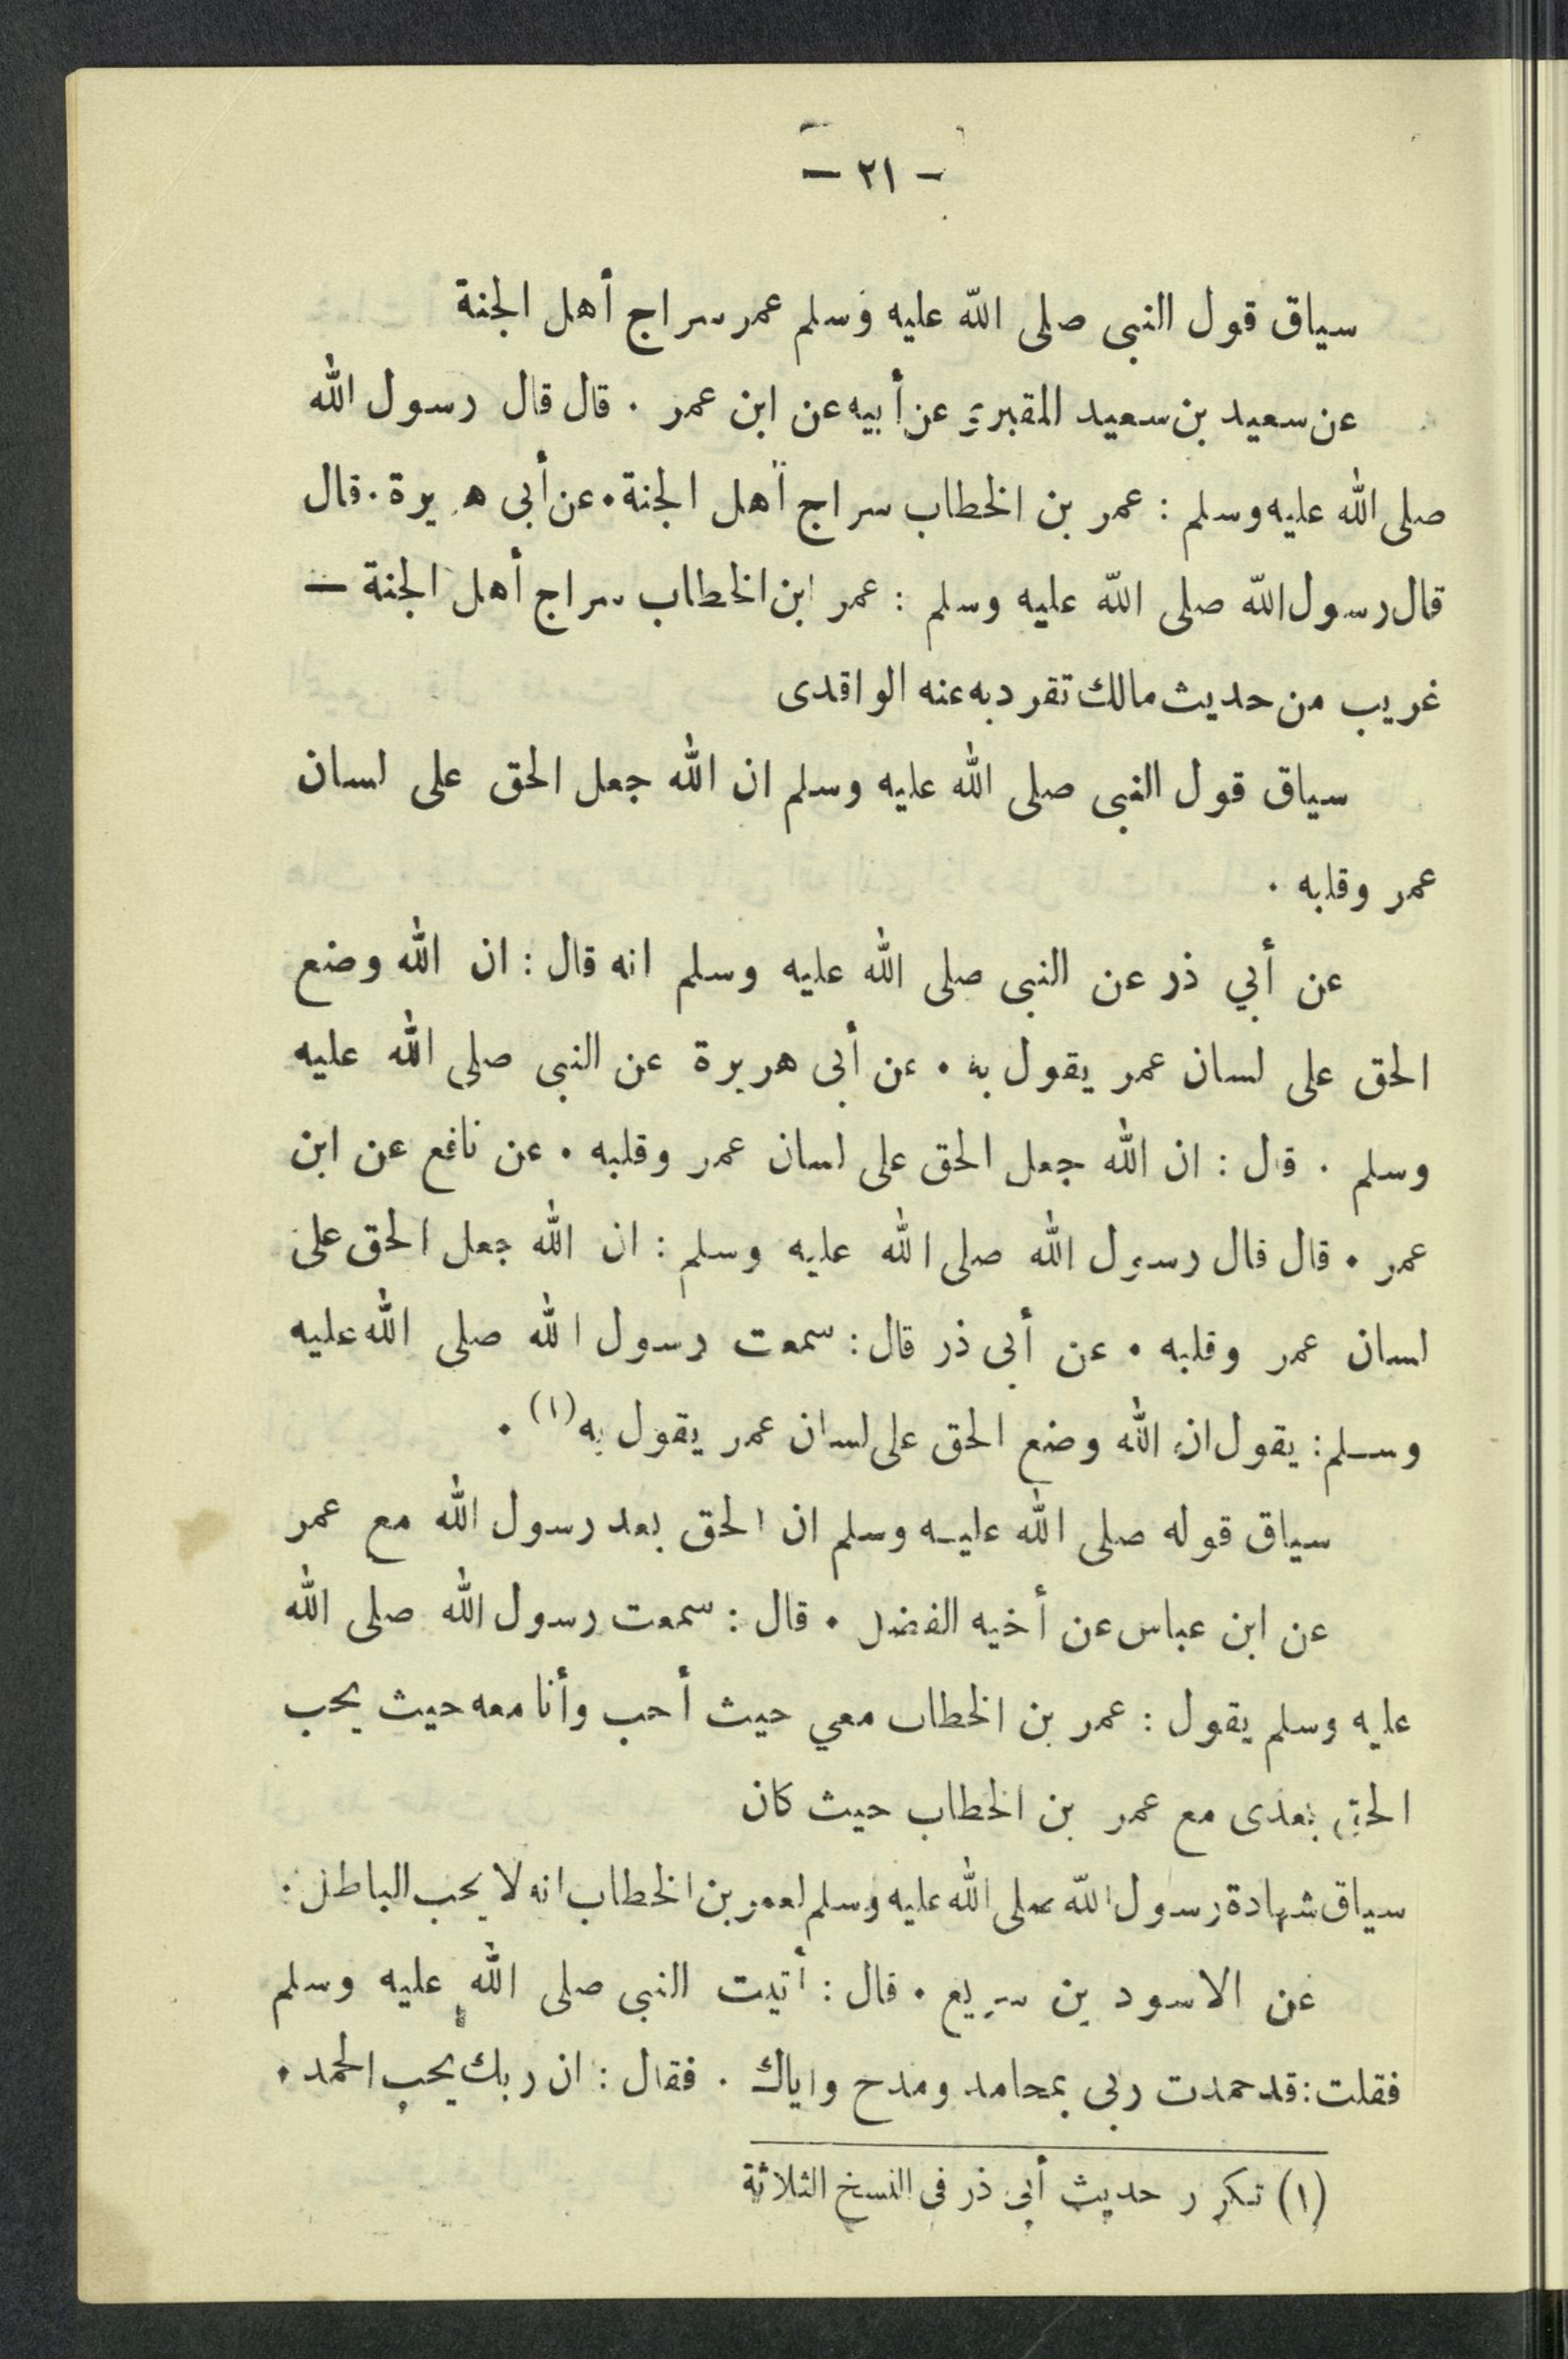 — ٢١ —
سياق قول النبى صلى الله عليه وسلم عمر سراج أهل الجنة
عن سعيد بن سعيد المقبري عن أبيه عن ابن عمر . قال قال رسول الله
صلى الله عليه وسلم : عمر بن الخطاب سراج أهل الجنة . عن أبى هريرة . قال
قال رسول الله صلى الله عليه وسلم : عمر ابن الخطاب سراج أهل الجنة —
غريب من حديث مالك تفرد به عنه الواقدى
سياق قول النبى صلى الله عليه وسلم ان الله جعل الحق على لسان
عمر وقلبه .
عن أبي ذر عن النبى صلى الله عليه وسلم انه قال : ان الله وضع
الحق على لسان عمر يقول به . عن أبى هريرة عن النبى صلى الله عليه
وسلم . قال : ان الله جعل الحق على لسان عمر وقلبه . عن نافع عن ابن
عمر . قال قال رسول الله صلى الله عليه وسلم : ان الله جعل الحق على
لسان عمر وقلبه . عن أبى ذر قال : سمعت رسول الله صلى الله عليه
وسلم : يقول ان الله وضع الحق على لسان عمر يقول به (١) .
سياق قوله صلى الله عليه وسلم ان الحق بعد رسول الله مع عمر
عن ابن عباس عن أخيه الفضل . قال : سمعت رسول الله صلى الله
عليه وسلم يقول : عمر بن الخطاب معي حيث أحب وأنا معه حيث يحب
الحق بعدى مع عمر بن الخطاب حيث كان
سياق شهادة رسول الله صلى الله عليه وسلم لعمر بن الخطاب انه لا يحب الباطل .
عن الاسود بن سريع . قال : أتيت النبى صلى الله عليه وسلم
فقلت : قد حمدت ربى بمحامد ومدح واياك . فقال : ان ربك يحب الحمد .
(١) تكرر حديث أبي ذر فى النسخ الثلاثة